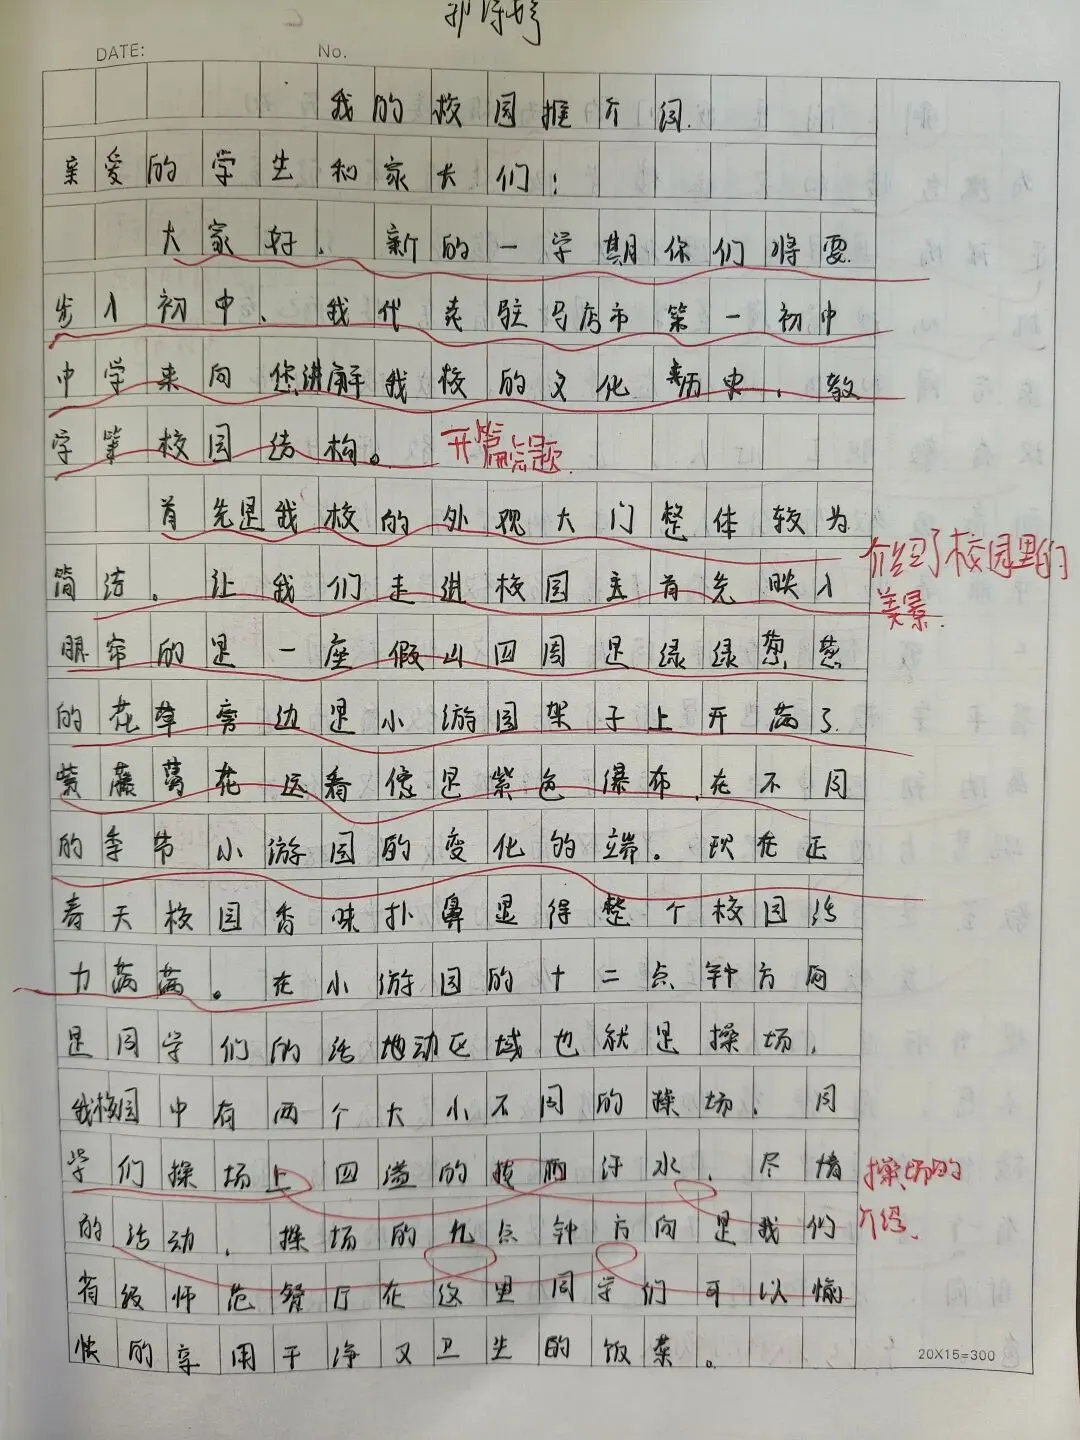 DATE:
No.
我的校园推介词
亲爱的学生和家长们:
大家好,新的一学期你们将要
步入初中、我代表驻马店市第一初中
中学来向您讲解我校的文化、历史,教
学筆校园结构。
开篇点题
首先是我校的外观大门整体较为
简洁。让我们走进校园主首先映入
眼帘的是一座假山四周是绿绿葱葱
的花草旁边是小游园架子上开满了
紫藤萝花远看像是紫色瀑布,在不同
的季节小游园的变化的端。现在正
春天校园香味扑鼻显得整个校园活
力满满。在小游园的十二点钟方向
是同学们的活地动区域也就是操场,
我校园中有两个大小不同的操场,同
学们操场上四溢的挥洒汗水,尽情
的活动,操场的九点钟方向是我们
省级师范餐厅在这里同学们可以愉
快的享用干净又卫生的饭菜。
介绍了校园里的
美景.
操场的
介绍.
20X15=300